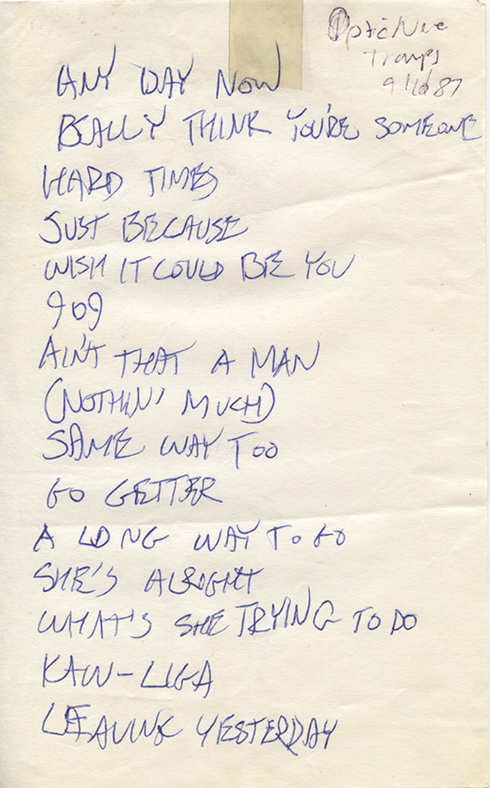 Optic Nerve
Tramps
9/10/87
ANY DAY NOW
REALLY THINK YOU'RE SOMEONE
HARD TIMES
JUST BECAUSE
WISH IT COULD BE YOU
909
AIN'T THAT A MAN
(NOTHIN' MUCH)
SAME WAY TOO
GO GETTER
A LONG WAY TO GO
SHE'S ALRIGHT
WHAT'S SHE TRYING TO DO
KAW-LIGA
LEAVING YESTERDAY